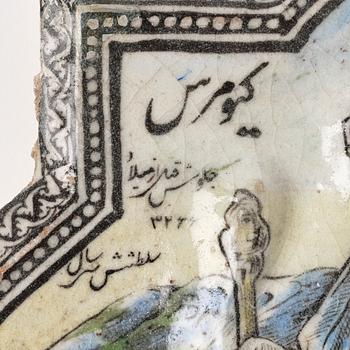 کیومرس
جلوسش قبل از میلاد
۳۲۶۶
سلطنتش سی سال